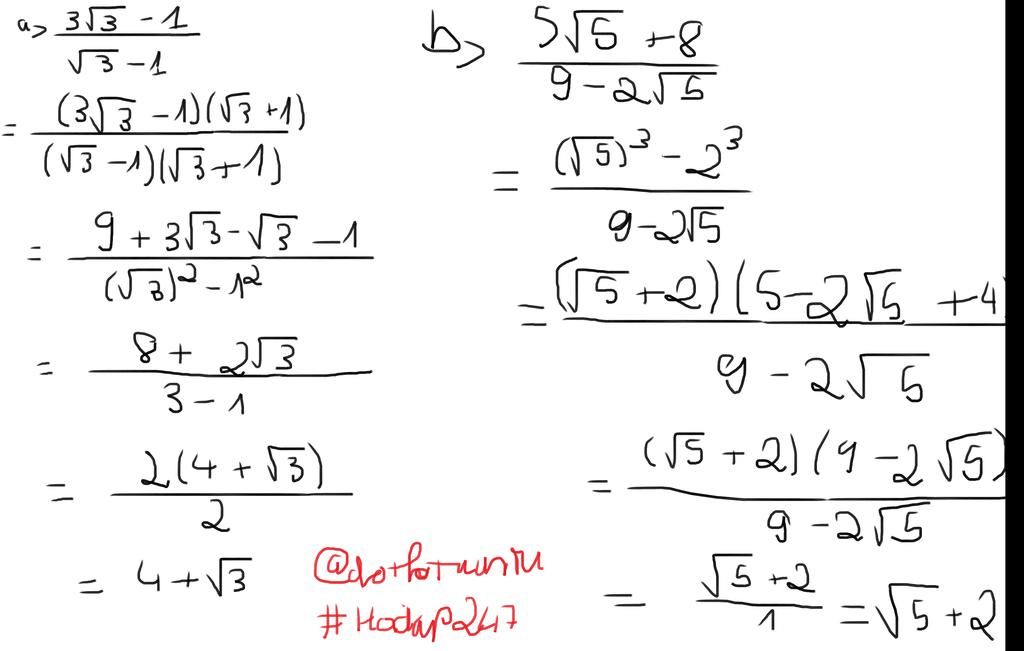 a> (3√3 - 1)/(√3 - 1)
= ((3√3 - 1)(√3 + 1))/((√3 - 1)(√3 + 1))
= (9 + 3√3 - √3 - 1)/((√3)² - 1²)
= (8 + 2√3)/(3 - 1)
= (2(4 + √3))/2
= 4 + √3
b> (5√5 + 8)/(9 - 2√5)
= ((√5)³ - 2³)/(9 - 2√5)
= ((√5 + 2)(5 - 2√5 + 4)/(9 - 2√5)
= ((√5 + 2)(9 - 2√5))/(9 - 2√5)
= (√5 + 2)/1 = √5 + 2
#Hodap247